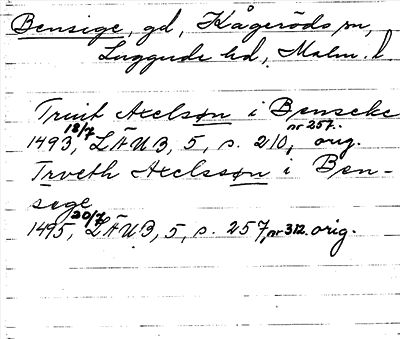 Bensige, gd, Kågeröds sn,
Luggude hd, Malm. l.
Truit Axelsøn i Benseke
1493 18/7, LÄUB, 5, s. 210, nr 257. orig.
Trveth Axelssøn i Ben-
sege
1495, 20/7 LÄUB, 5, s. 257, nr 312. orig.